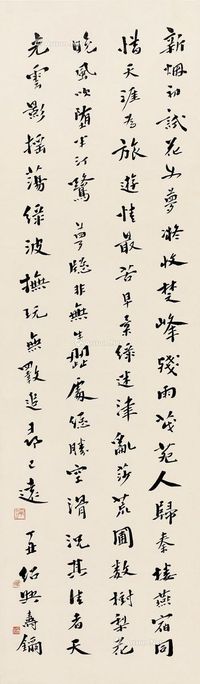 新烟初試花如夢疑收楚峰殘雨茂苑人歸秦樓燕宿同
惜天涯為旅遊情最苦早柔綠迷津亂莎荒圃數樹梨花
晚風吹墮半汀鷺　夢牕非無生澀處總勝空滑況其佳者天
光雲影搖蕩綠波撫玩無斁追尋已遠　丁丑　紹興壽鑈